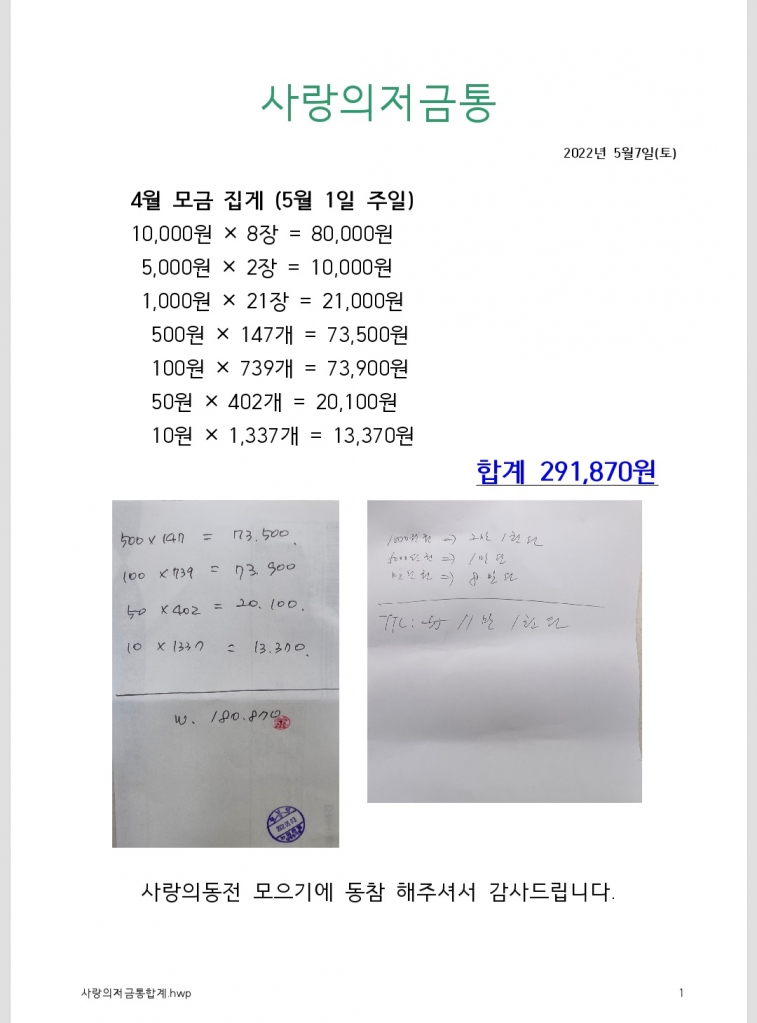 사랑의저금통
2022년 5월7일(토)
4월 모금 집게 (5월 1일 주일)
10,000원 × 8장 = 80,000원
5,000원 × 2장 = 10,000원
1,000원 × 21장 = 21,000원
500원 × 147개 = 73,500원
100원 × 739개 = 73,900원
50원 × 402개 = 20,100원
10원 × 1,337개 = 13,370원
합계 291,870원
500 x 147 = 73.500.
100 x 739 = 73.900
50 x 402 = 20.100.
10 x 1337 = 13.370.
W. 180.870
사랑의동전 모으기에 동참 해주셔서 감사드립니다.
사랑의저금통합계.hwp
1